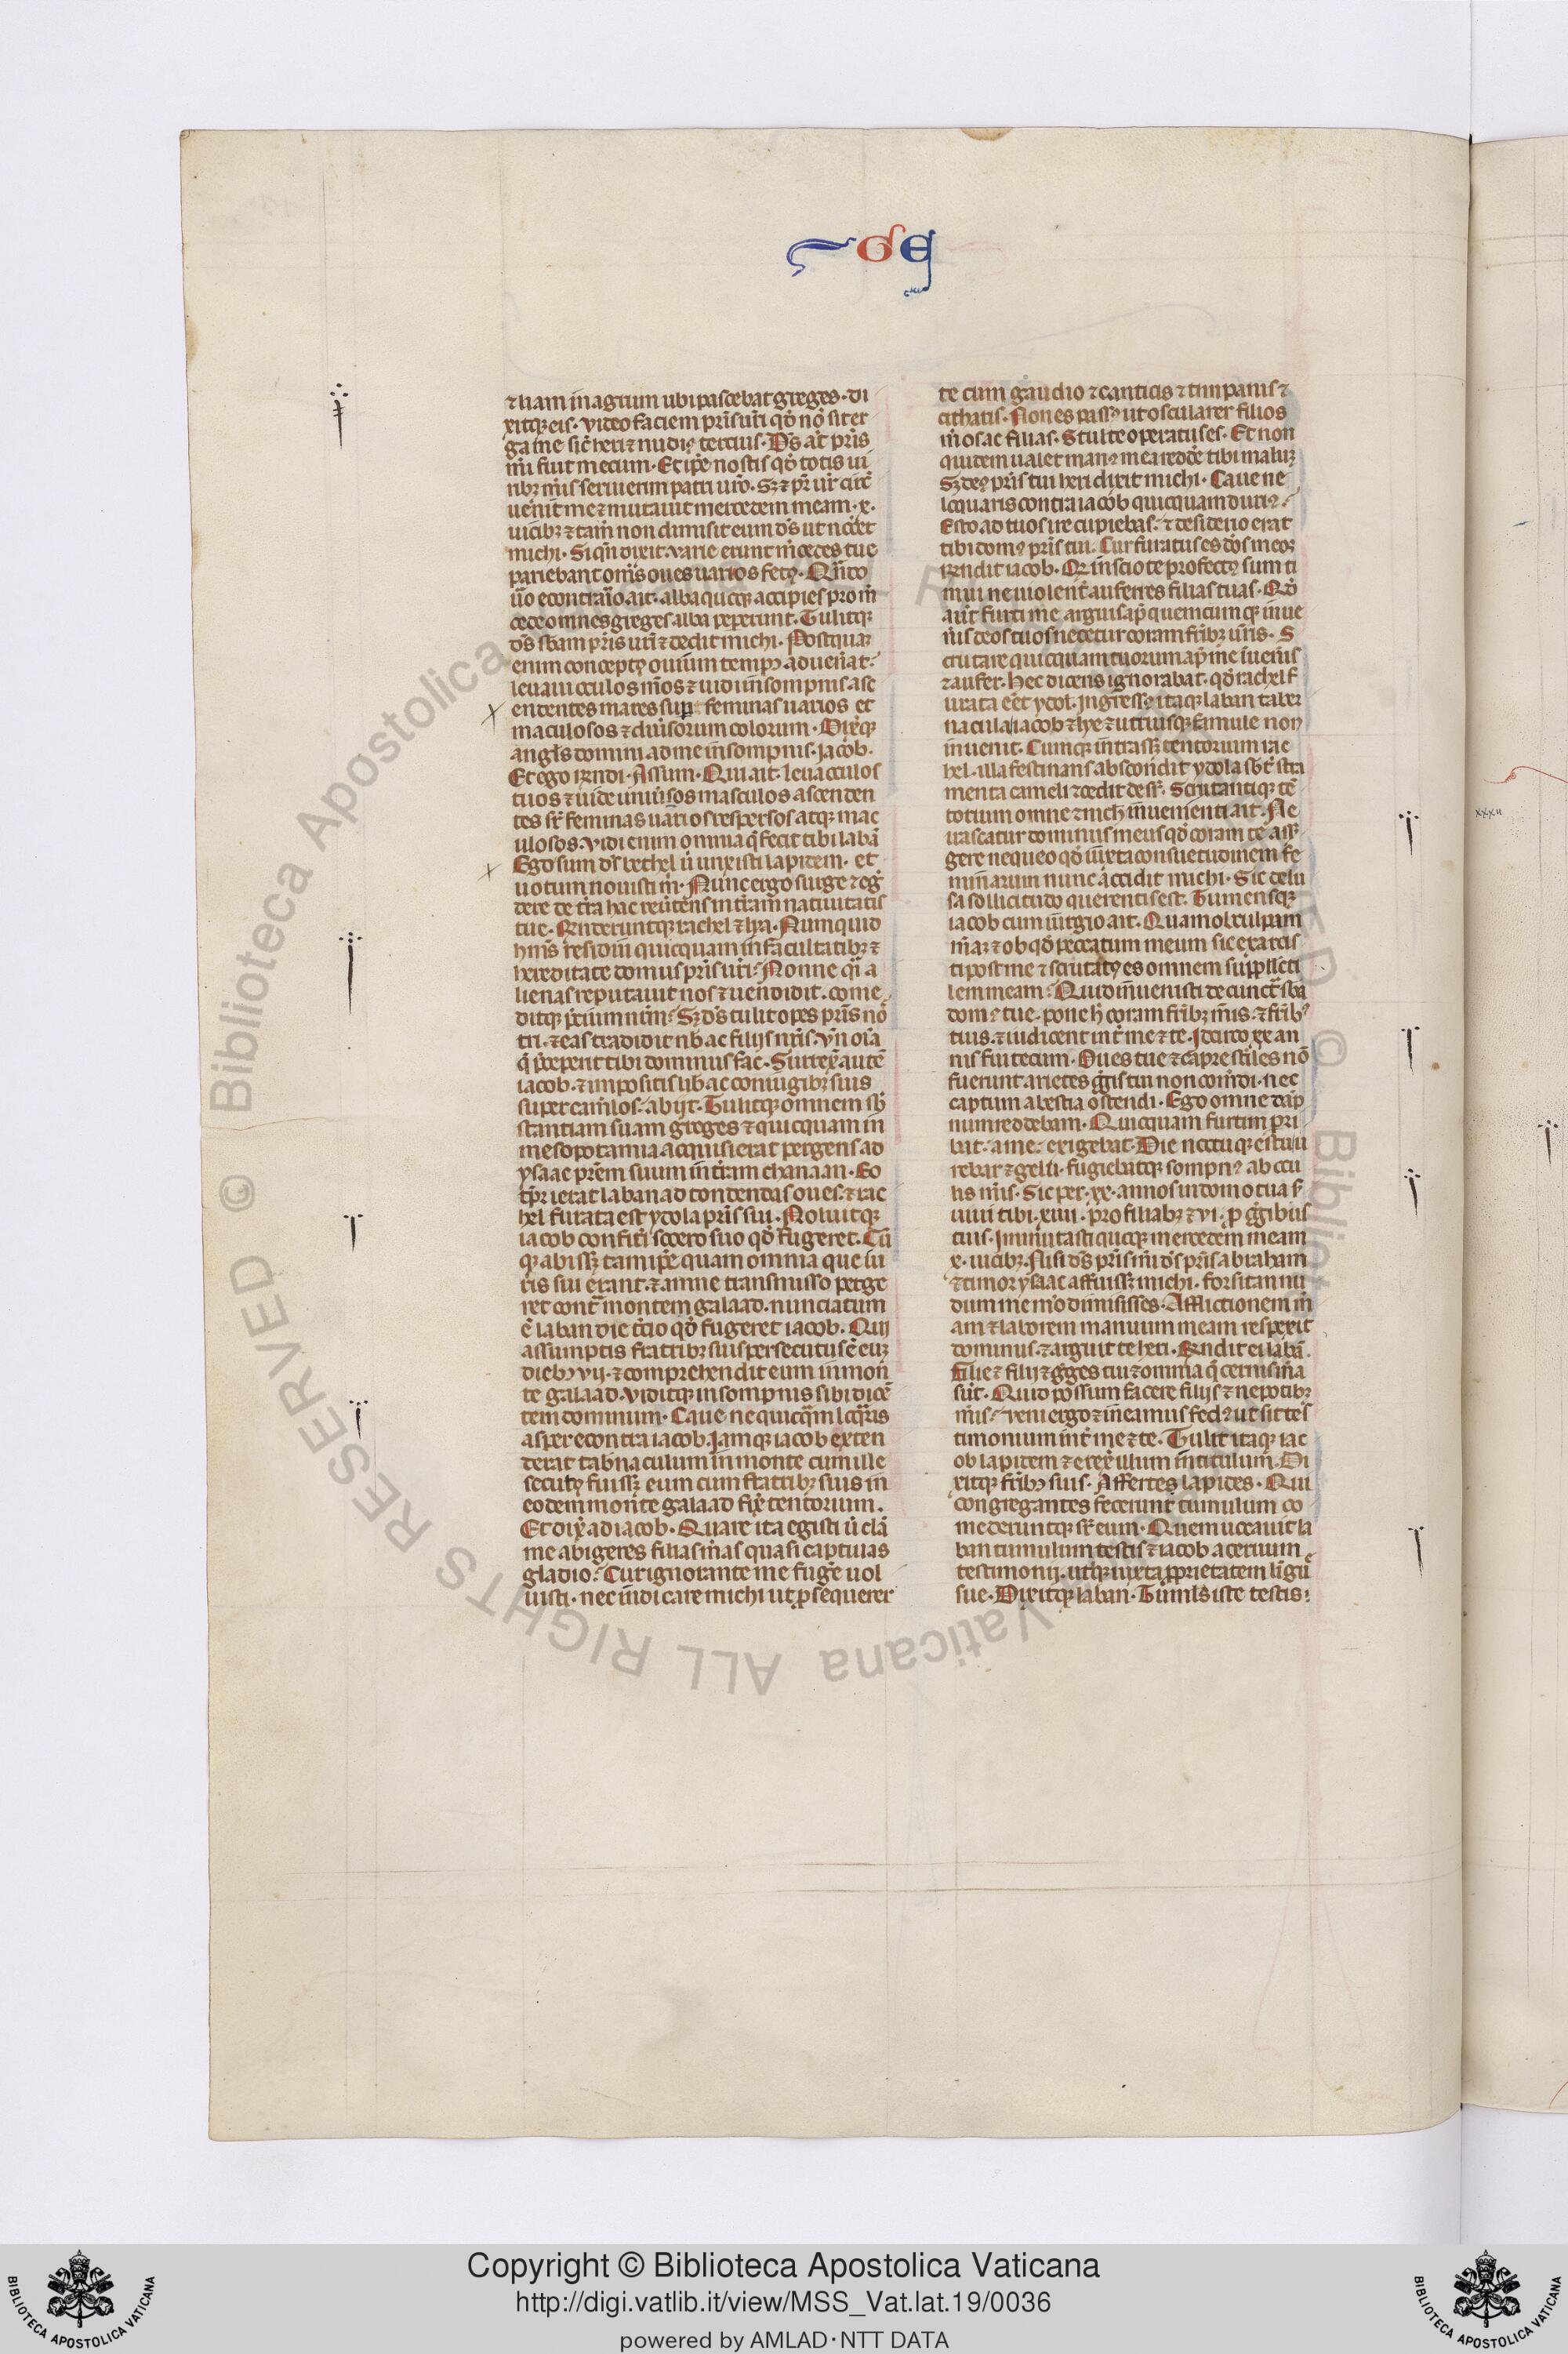 GE
⁊ liam in agrum ubi pascebat greges. di
xitq; eis. Video faciem pr̄is ur̄i qđ nō sit er
ga me sic̄ heri ⁊ nudiꝰ tercius. Dš aūt pr̄is
mī fuit mecum. Et ip̄e nostis qđ totis ui
ribꝫ mīs seruierim patri uro. Sꝫ ⁊ pr̄ ur̄ circū
uenit me ⁊ mutauit mercedem meam. x.
uicibꝫ ⁊ tam̄ non dimisit eum dš ut nocēt
michi. Si qn̄ dixit. uarie erunt mc̄edes tue
pariebant om̄s oues uarios fetꝰ. Qn̄to
uo econtraio ait. alba quecꝫ accipies pro m̄
cede omnes greges alba peperunt. Tulitqꝫ
dš sbam pr̄is uri ⁊ dedit michi. Postquaꝫ
enim conceptꝰ ouium tempꝰ aduen̄at.
leuaui oculos mōs ⁊ uidi in sompnis asc
endentes mares sup feminas uarios et
maculosos ⁊ diu̓sorum colorum. Dix̄qꝫ
angl̄s domini ad me in sompnis. Jacob.
Et ego rn̄di. Assum. Qui ait. leua oculos
tuos ⁊ uide uniu̓sos masculos ascenden
tes sr̄ feminas uarios respersos atqꝫ mac
ulosos. Vidi enim omnia q̄ fecit tibi labā
Ego sum dš bethel u̓ unxisti lapidem. et
uotum nouisti m̄. Nunc ergo surge ⁊ eg̓
dere de tr̄a hac reu̓tens in tr̄am natiuitatis
tue. Rn̄deruntqꝫ rachel ⁊ lya. Numquid
hm̄s residui quicquam in facultatibꝫ ⁊
hereditate domus pr̄is uri. Nonne q̄i a
lienas reputauit nos ⁊ uendidit. come
ditqꝫ p̄cium nrm̄. Sꝫ dš tulit opes pr̄is nō
tri. ⁊ eas tradidit nb̄ ac filijs nr̄is. Vn̄ oīa
q̄ p̄cepit tibi dominus fac. Surrex̄ autē
iacob. ⁊ impositis lib̄ ac coniugibꝫ suis
super camlos. abijt. Tulitqꝫ omnem sb̄
stantiam suam greges ⁊ quicquam in
mesopotamia acquisierat pergens ad
ysaac prēm suum in tr̄am chanaan. Eo
tp̄r ierat laban ad tondendas oues. ⁊ rac
hel furata est ydola pr̄is sui. Noluitqꝫ
iacob confit̄i socero suo qđ fugeret. Cū
qꝫ abissꝫ tam ip̄e quam omnia que iu
ris sui erant. ⁊ amne transmisso perge
ret cont̄ montem galaad. nunciatum
ē laban die tc̄io qđ fugeret iacob. Qui
assumptis fratribꝫ suis persecutus ē euꝫ
diebꝫ vij. ⁊ comprehendit eum in mon
te galaad. Viditqꝫ in sompnis sibi dicē
tem dominum. Caue ne quicq̄m loq̄ris
aspere contra iacob. Jamqꝫ iacob exten
derat tabn̄aculum in monte cumille
secutꝰ fuissꝫ eum cum fratribꝫ suis in
eodem monte galaad fix̄ tentorium.
Et dix̄ ad iacob. Quare ita egisti u̓ clā
me abigeres filias mās quasi captiuas
gladio. Cur ignorante me fuge̓ uol
uisti. nec indicare michi ut ꝓsequerer
te cum gaudio ⁊ canticis ⁊ timpanis ⁊
citharis. Non es passꝰ ut oscularer filios
mōs ac filias. Stulte operatus es. Et non
quidem ualet manꝰ mea redde̓ tibi maluꝫ
Sꝫ deꝰ pr̄is tui heri dixit michi. Caue ne
loquaris contra iacob quicquam duriꝰ.
Esto ad tuos ire cupiebas. ⁊ desiderio erat
tibi domꝰ pr̄is tui. Cur furatus es dōs meoꝫ
Rn̄dit iacob. Qꝫ inscio te profectꝰ sum ti
mui ne uiolent̄ auferres filias tuas. Qđ
aut̄ furti me arguis ap̄ quemcumqꝫ inue
n̄is deos tuos necetur coram fr̄ibꝫ ur̄is. S
crutare quicquam tuorum ap̄ me inuen̄is
⁊ aufer. Hec dicens ignorabat. qđ rachel f
urata eēt ydol. Ingressꝰ itaqꝫ laban taber
nacula iacob ⁊ lye ⁊ utriusqꝫ famule non
inuenit. Cumqꝫ intrassꝫ tentorium rac
hel. illa festinans abscondit ydola sb̄t stra
menta cameli ⁊ sedit desr̄. Scrutantiqꝫ tē
torium omne ⁊ nich̄ inuenienti ait. Ne
irascatur dominus meus qđ coram te assꝫ
gere nequeo qđ iuxta consuetudinem fe
minarum nunc accidit michi. Sic delu
sa sollicitudo querentis est. Tumensqꝫ
iacob cum iurgio ait. Quam ob culpam
māꝫ ⁊ ob qđ peccatum meum sic exarsis
ti post me ⁊ scrutatꝰ es omnem supplecti
lem meam. Quid inuenisti de cunct̄ sba
domꝰ tue. pone h̄ coram fr̄ibꝫ mīs. ⁊ fr̄ibꝫ
tuis. ⁊ iudicent int̄ me ⁊ te. Idcirco xx an
nis fui tecum. Oues tue ⁊ capre st̓iles nō
fuerunt. arietes gg̓is tui non com̄di. nec
captum a bestia ostendi. Ego omne dāp
num reddebam. Quicquam furtim pri
bat. a me exigebat. Die noctuqꝫ estu u
rebar ⁊ gelu. fugiebatqꝫ sompnꝰ ab ocu
lis mīs. Sic per. xx. annos in domo tua s̓
uiui tibi. xiiii. pro filiabꝫ ⁊ vi. ꝓ gg̓ibus
tuis. Immutasti quoqꝫ mercedem meam
x. uicibꝫ. Nisi dš pr̄is mī dš pr̄is abraham
⁊ timor ysaac affuissꝫ michi. forsitan nu
dum me mō dimisisses. Afflictionem m̄
am ⁊ laborem manuum mearum respexit
dominus. ⁊ arguit te heri. Rn̄dit ei labā.
Filie ⁊ filij ⁊ gg̓es tui ⁊ omnia q̄ cernis mā
sūt. Quid possum facere filijs ⁊ nepotibꝫ
mīs. Veni ergo ⁊ ineamus fedꝰ ut sit tes
timonium int̄ me ⁊ te. Tulit itaqꝫ iac
ob lapidem ⁊ erex̄ illum in titulum. Di
xitqꝫ fr̄ibꝫ suis. Affertes lapides. Qui
congregantes fecerunt tumulum co
mederuntqꝫ sr̄ eum. Quem uocauit la
ban tumulum testis ⁊ iacob aceruum
testimonij. utqꝫ iuxta ꝓprietatem lingū
sue. Dixitqꝫ laban. Tumls iste testis
xxxii
© Biblioteca Apostolica Vaticana ALL RIGHTS RESERVED
Copyright © Biblioteca Apostolica Vaticana
http://digi.vatlib.it/view/MSS_Vat.lat.19/0036
powered by AMLAD·NTT DATA
BIBLIOTECA APOSTOLICA VATICANA
BIBLIOTECA APOSTOLICA VATICANA